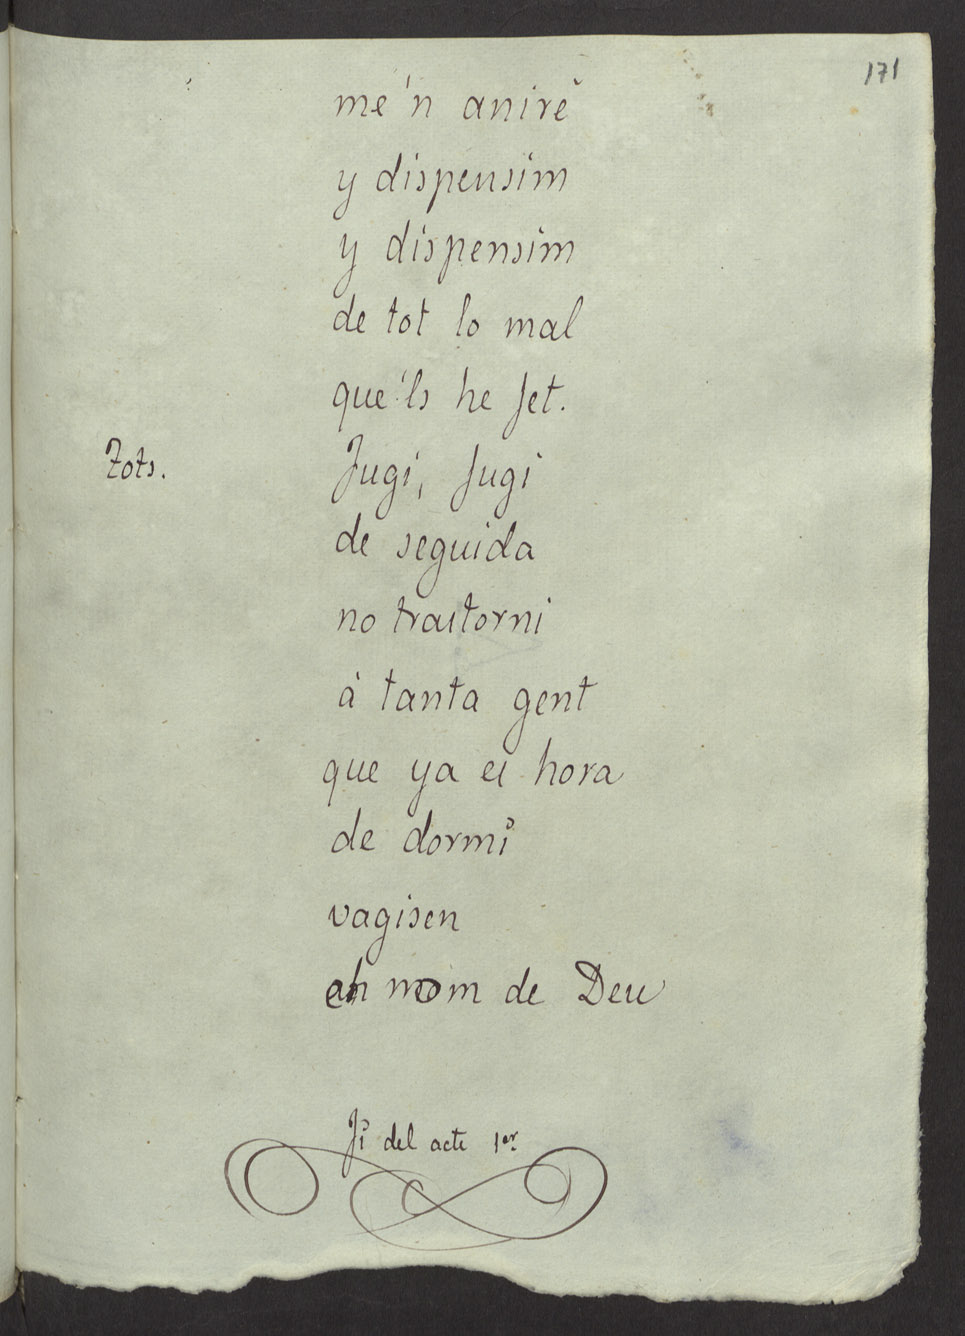 171
me'n aniré
y dispensim
y dispensim
de tot lo mal
que'ls he fet.
Tots. Fugi, fugi
de seguida
no trastorni
á tanta gent
que ya es hora
de dormí
vagisen
en nom de Deu
Fí del acte 1er.